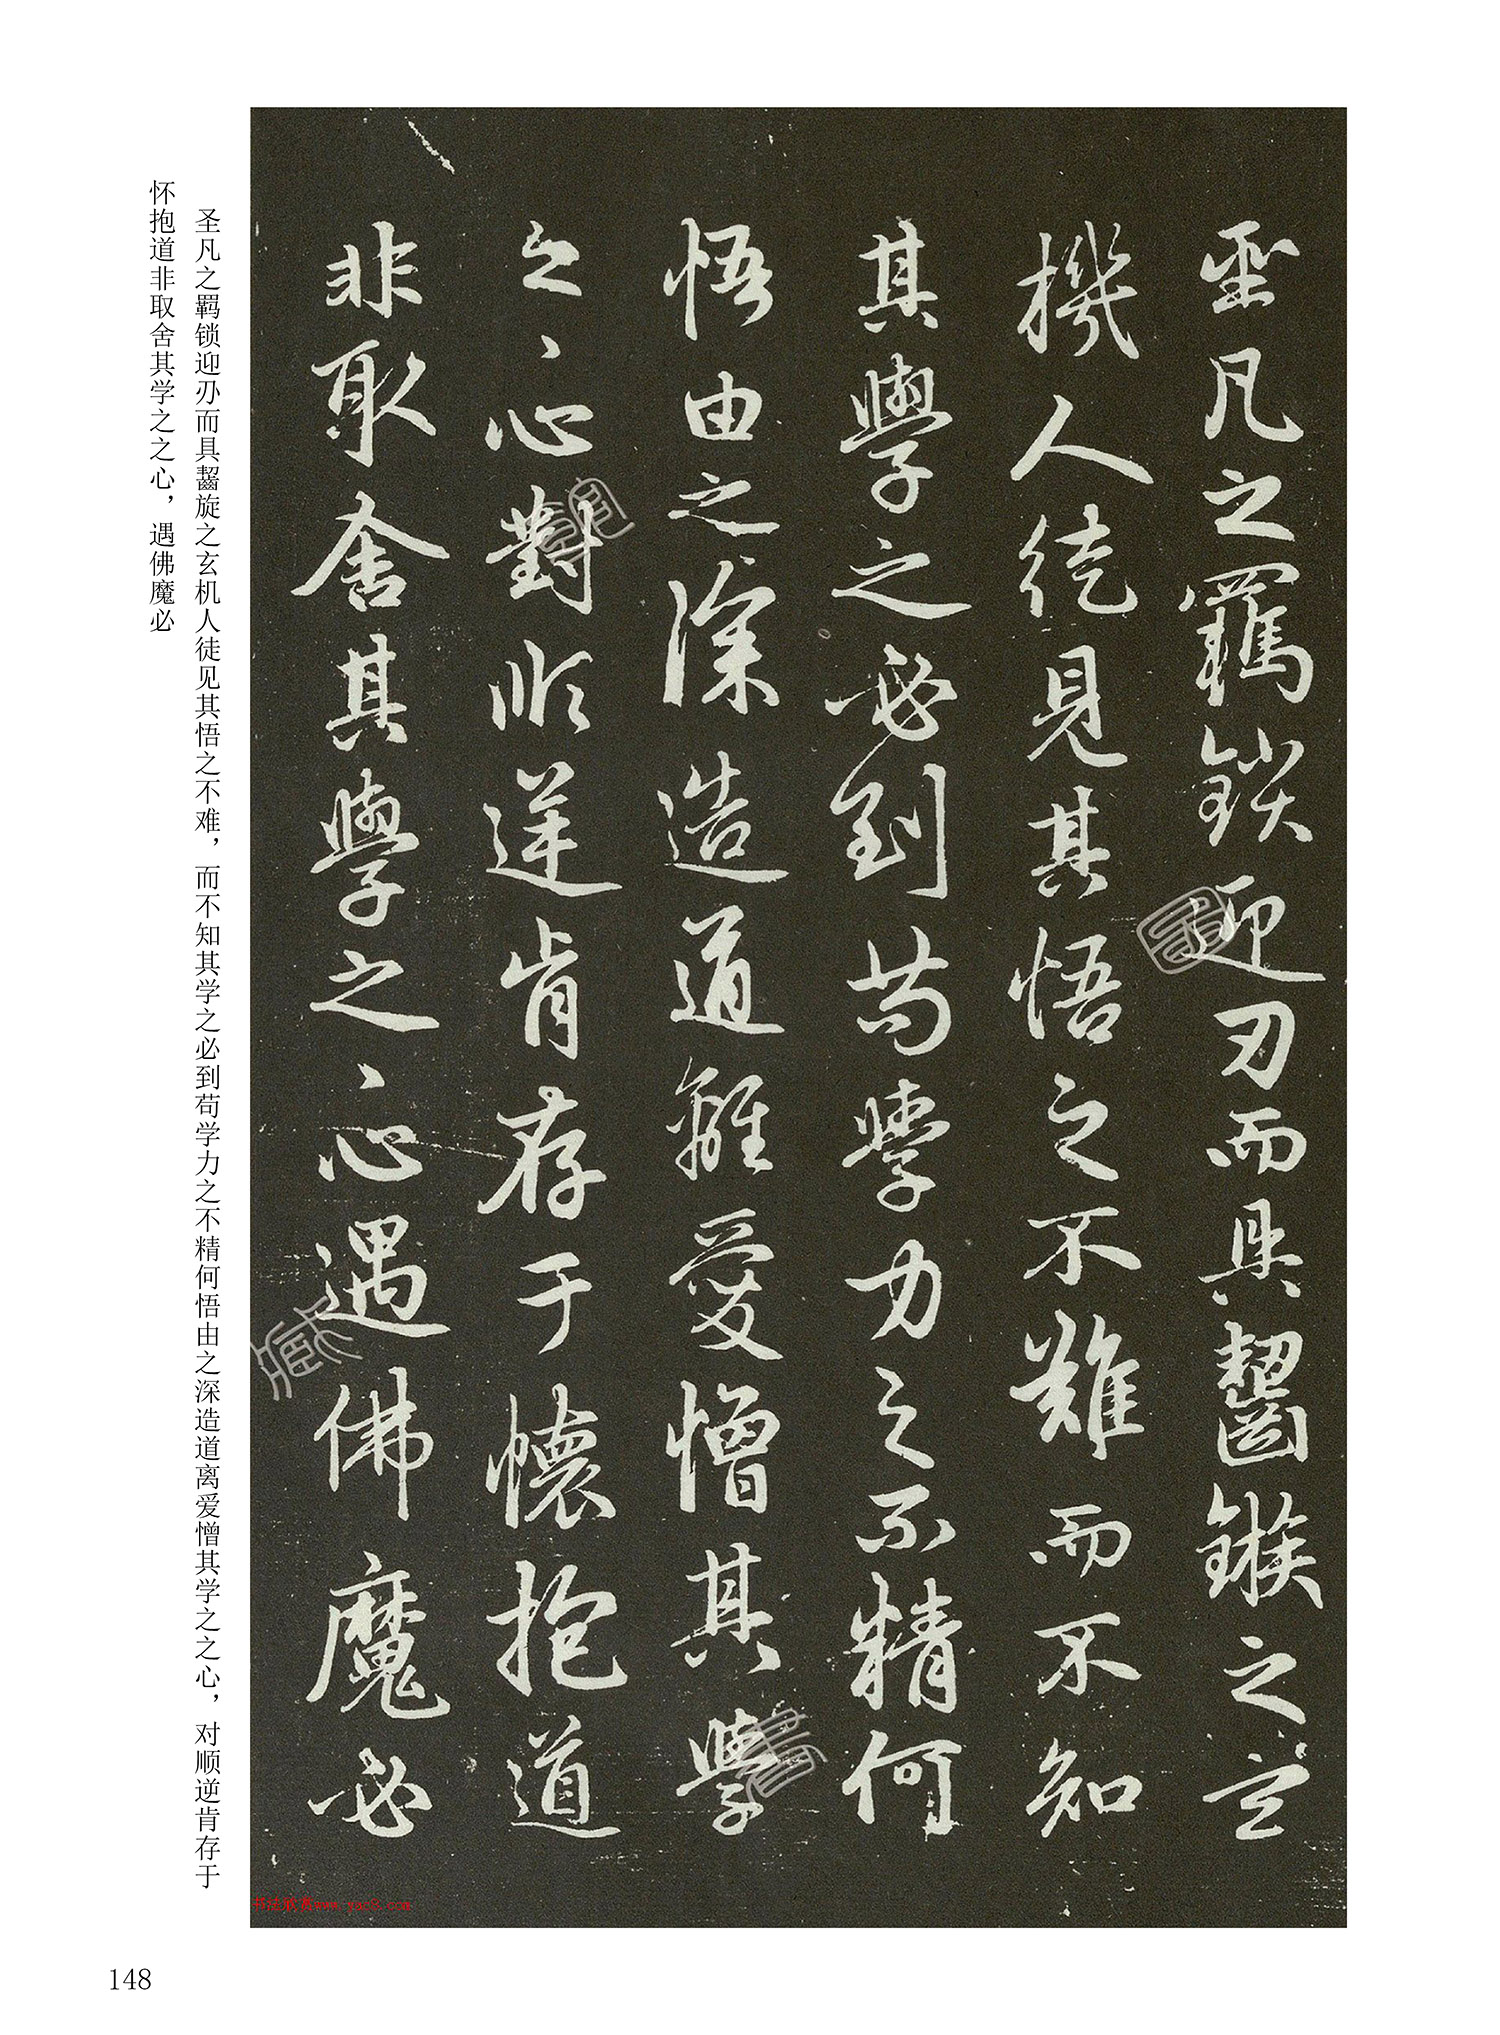 聖凡之羈鎖迎刃而具齧鏃之玄
機人徒見其悟之不難而不知
其學之必到苟學力之不精何
悟由之深造道離愛憎其學
之心對順逆肯存于懷抱道
非取舍其學之心遇佛魔必
圣凡之羁锁迎刃而具齧旋之玄机人徒见其悟之不难，而不知其学之必到苟学力之不精何悟由之深造道离爱憎其学之之心，对顺逆肯存于
怀抱道非取舍其学之之心，遇佛魔必
书法欣赏www.yac8.com
148